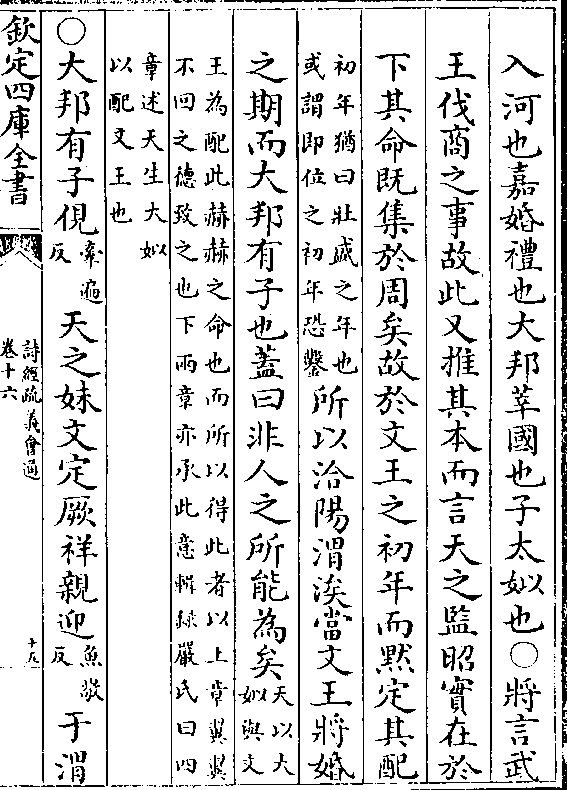 入河也嘉婚禮也大邦莘國也子太姒也○將言武
王伐商之事故此又推其本而言天之監昭實在於
下其命既集於周矣故於文王之初年而默定其配
初年猶曰壯盛之年也
或謂即位之初年恐鑿
所以洽陽渭涘當文王將婚
之期而大邦有子也蓋曰非人之所能為矣
天以大
姒與文
王為配此赫赫之命也而所以得此者以上章翼翼
不回之德致之也下兩章亦承此意輯録嚴氏曰四
章述天生大姒
以配文王也
○大邦有子俔
牽遍
反
天之妹文定厥祥親迎
魚敬
反
于渭
欽定四庫全書
詩經疏義會通
卷十六
十五